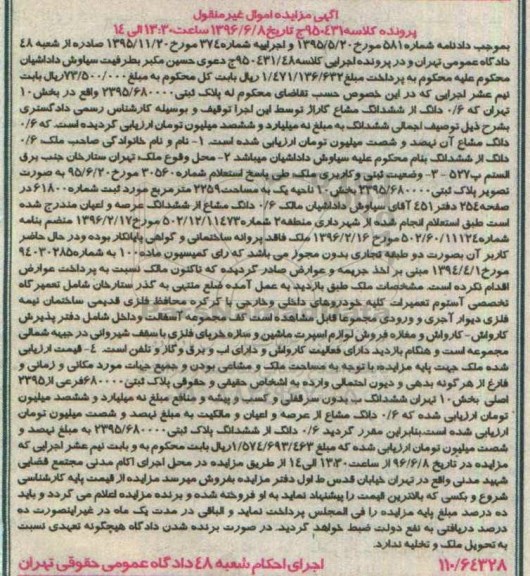 آگهی مزایده اموال غیرمنقول
پرونده کلاسه ۹۵۰۴۳۱ج تاریخ ۱۳۹۶/۶/۸ ساعت ۱۳:۳۰ الی ۱۴
بموجب دادنامه شماره ۵۸۱ مورخ ۱۳۹۵/۵/۲۰ و اجراییه شماره ۳۷۴ مورخ ۱۳۹۵/۱۱/۲۰ صادره از شعبه ۴۸
دادگاه عمومی تهران و در پرونده اجرایی کلاسه ۹۵۰۴۳۱/۴۸ج دعوی حسین مکبر بطرفیت سیاوش داداشیان
محکوم علیه محکوم به پرداخت مبلغ ۱/۴۷۱/۱۳۶/۶۳۲ ریال بابت کل محکوم به مبلغ ۷۳/۵۰۰/۰۰۰ ریال بابت
نیم عشر اجرایی که در این خصوص حسب تقاضای محکوم له پلاک ثبتی ۲۳۹۵/۶۸۰۰۰۰ واقع در بخش ۱۰
تهران که ۰/۶ دانگ از ششدانگ مشاع گاراژ توسط این اجرا توقیف و بوسیله کارشناس رسمی دادگستری
بشرح ذیل توصیف اجمالی ششدانگ به مبلغ نه میلیارد و ششصد میلیون تومان ارزیابی گردیده است. که ۰/۶
دانگ مشاع آن نهصد و شصت میلیون تومان ارزیابی شده است. ۱- نام و نام خانوادگی صاحب ملک ۰/۶
دانگ از ششدانگ بنام محکوم علیه سیاوش داداشیان میباشد ۲- محل وقوع ملک تهران ستارخان جنب برق
آلستم پ ۵۲۷ - ۳- وضعیت ثبتی و کاربری ملک طی پاسخ استعلام شماره ۳۰۵۶۰ مورخ ۹۵/۶/۲۰ به صورت
تصویر پلاک ثبتی ۲۳۹۵/۶۸۰۰۰۰ بخش ۱۰ ناحیه یک به مساحت ۲۲۵۹ مترمربع مورد ثبت شماره ۶۱۸۰۰ در
صفحه ۲۵۴ دفتر ۴۵۱ آقای سیاوش داداشیان مالک ۰/۶ دانگ مشاع از ششدانگ عرصه و اعیان مندرج شده
است طبق استعلام انجام شده از شهرداری منطقه ۲ شماره ۵۰۲/۱۲/۱۱۴۷۳ مورخ ۱۳۹۶/۲/۱۷ منضم بنامه
شماره ۵۰۲/۶۰/۱۱۱۲۴ مورخ ۱۳۹۶/۲/۱۶ ملک فاقد پروانه ساختمانی و گواهی پایانکار بوده و در حال حاضر
کاربر آن بصورت دو طبقه تجاری بدون مجوز می باشد که رای کمیسیون ماده ۱۰۰ به شماره ۹۴۰۳۰۲۸۵
مورخ ۱۳۹۴/۴/۱ مبنی بر اخذ جریمه و عوارض صادر گردیده که تاکنون مالک نسبت به پرداخت عوارض
اقدام نکرده است. مشخصات ملک طبق بازدید به عمل آمده ضلع منتهی به گذر ستارخان شامل تعمیرگاه
تخصصی آستوم تعمیرات کلیه خودروهای داخلی و خارجی با کرکره محافظ فلزی قدیمی ساختمان نیمه
فلزی دیوار آجری و ورودی مجموعا قابل مشاهده است. کف مجموعه آسفالت و داخل شامل دفتر پذیرش
کارواش- کارواش و مغازه فروش لوازم اسپرت ماشین و سازه خرپای فلزی با سقف شیروانی در جبهه شمالی
مجموعه است و هنگام بازدید دارای فعالیت کارواش و دارای آب و برق و گاز و تلفن است. ۴- قیمت ارزیابی
شده ملک جهت پایه مزایده: با توجه به مساحت ملک و مشاعی بودن و جمیع جهات مورد مکانی و زمانی و
فارغ از هرگونه بدهی و دیون احتمالی وارده به اشخاص حقیقی و حقوقی پلاک ثبتی ۶۸۰۰۰۰ فرعی از ۲۳۹۵
اصلی بخش ۱۰ تهران ششدانگ ... بدون سرقفلی و کسب و پیشه و منافع مبلغ نه میلیارد و ششصد میلیون
تومان ارزیابی شده که ۰/۶ دانگ مشاع از عرصه و اعیان و مالکیت به مبلغ نهصد و شصت میلیون تومان
ارزیابی شده است. بنابراین مقرر گردید ۰/۶ دانگ از ششدانگ پلاک ثبتی ۲۳۹۵/۶۸۰۰۰۰ به مبلغ نهصد و
شصت میلیون تومان ارزیابی شده که مبلغ ۱/۵۷۴/۶۹۳/۴۶۳ ریال بابت محکوم به و بابت نیم عشر اجرایی که
مزایده در تاریخ ۹۶/۶/۸ از ساعت ۱۳:۳۰ الی ۱۴ از طریق مزایده در محل اجرای احکام مدنی مجتمع قضایی
شهید مدنی واقع در تهران خیابان قدس ط اول دفتر مزایده بفروش میرسد مزایده از قیمت پایه کارشناسی
شروع و بکسی که بالاترین قیمت را پیشنهاد نماید به او فروخته شده و برنده مزایده اعلام می گردد و باید
ده درصد مبلغ پایه مزایده را فی المجلس پرداخت نماید و الباقی در مدت یک ماه در غیراینصورت ده
درصد دریافتی به نفع دولت ضبط خواهد گردید. در صورت برنده شدن دادگاه هیچگونه تعهدی نسبت
به تحویل ملک و تخلیه ندارد.
۱۱۰/۶۴۳۲۸ اجرای احکام شعبه ۴۸ دادگاه عمومی حقوقی تهران